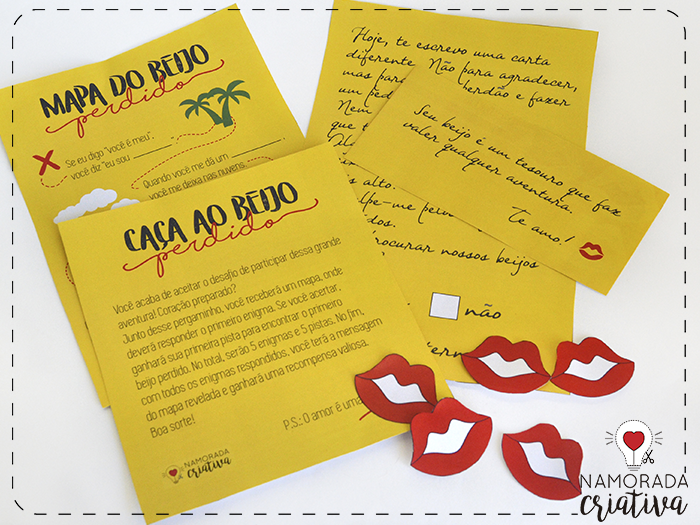 MAPA DO BEIJO
perdido
Se eu digo “você é meu”,
você diz “eu sou
Quando você me dá um
você me deixa nas nuvens.
Hoje, te escrevo uma carta
diferente. Não para agradecer,
mas para
um ped perdão e fazer
Nem
que t
Seu beijo é um tesouro que faz
valer qualquer aventura.
Te amo!
CAÇA AO BEIJO
perdido
Você acaba de aceitar o desafio de participar dessa grande
aventura! Coração preparado?
Junto desse pergaminho, você receberá um mapa, onde
deverá responder o primeiro enigma. Se você acertar,
ganhará sua primeira pista para encontrar o primeiro
beijo perdido. No total, serão 5 enigmas e 5 pistas. No fim,
com todos os enigmas respondidos, você terá a mensagem
do mapa revelada e ganhará uma recompensa valiosa.
Boa sorte!
P.S.: O amor é uma
NAMORADA
criativa
s alto.
lpe-me pel
dos.
procurar nossos beijos
não
NAMORADA
criativa